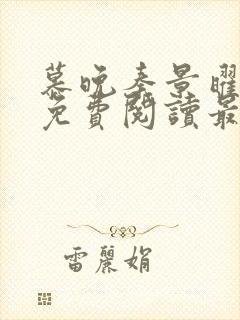 慕晚秦景曜
免費閱讀最
雷麗娟